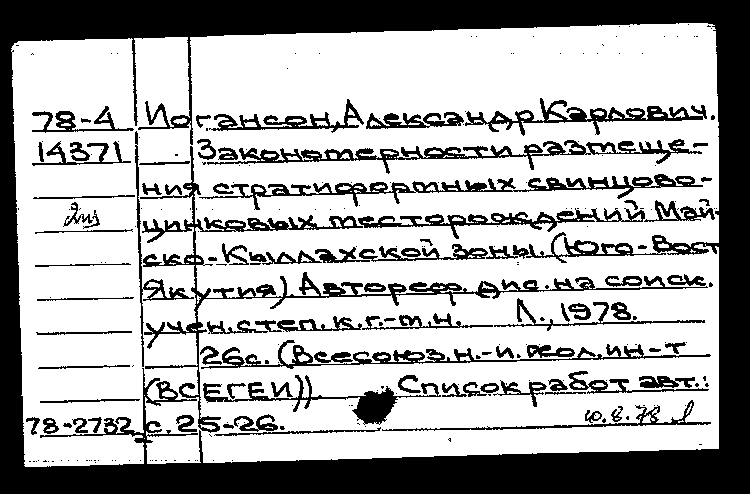 78-4 Иогансон, Александр Карлович.
14371 Закономерности размеще-
ния стратиформных свинцово-
цинковых месторождений Май-
ско-Кыллахской зоны. (Юго-Вост
Якутия). Автореф. дис. на соиск.
учен. степ. к.г.-м.н. Л., 1978.
26с. (Всесоюз. н.-и. геол. ин-т
(ВСЕГЕИ)). Список работ авт.:
78-2732 с. 25-26. 10.8.78